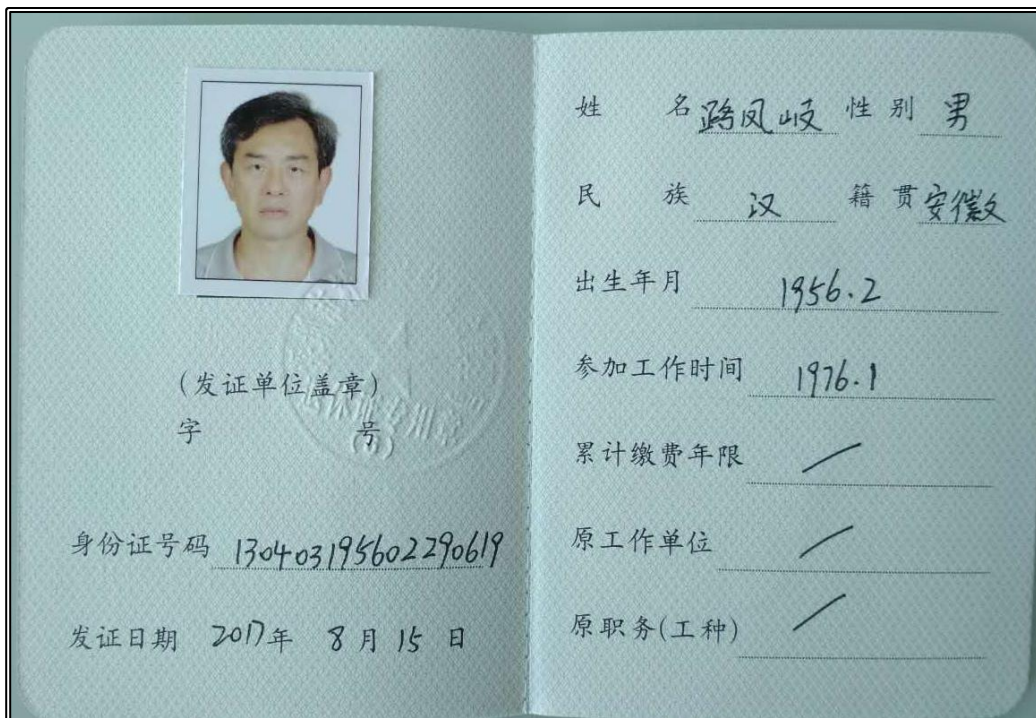 (发证单位盖章)
字 号
身份证号码 130403195602290619
发证日期 2017年 8月 15日
姓 名 路凤岐 性别 男
民 族 汉 籍贯 安徽
出生年月 1956.2
参加工作时间 1976.1
累计缴费年限 /
原工作单位 /
原职务(工种) /